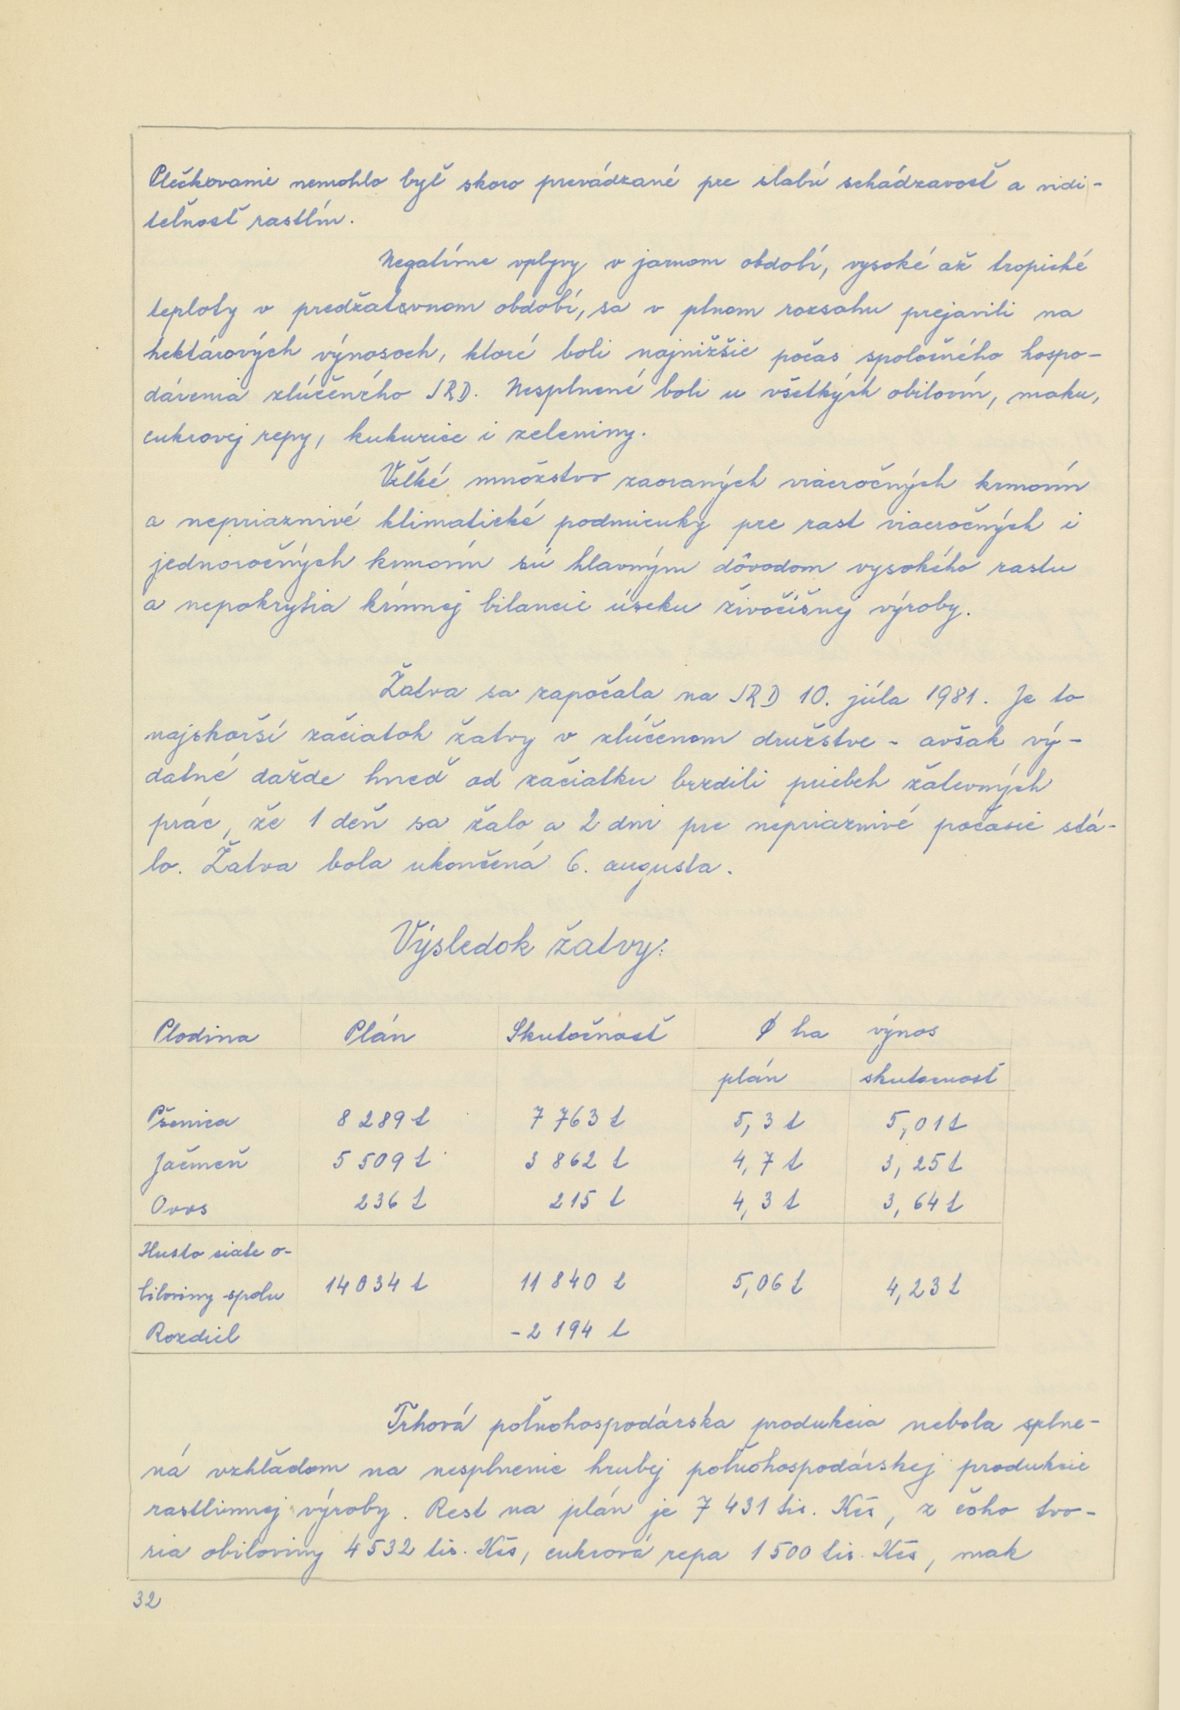 Plečkovanie nemohlo byť skoro prevádzané pre slabú schádzavosť a vidi-
teľnosť rastlín.
Negatívne vplyvy v jarnom období, vysoké až tropické
teploty v predžatevnom období, sa v plnom rozsahu prejavili na
hektárových výnosoch, ktoré boli najnižšie počas spoločného hospo-
dárenia zlúčeného JRD. Nesplnené boli u všetkých obilovín, maku,
cukrovej repy, kukurice i zeleniny.
Veľké množstvo zaoraných viacročných krmovín
a nepriaznivé klimatické podmienky pre rast viacročných i
jednoročných krmovín sú hlavným dôvodom vysokého rastu
a nepokrytia krmnej bilancie úseku živočíšnej výroby.
Žatva sa započala na JRD 10. júla 1981. Je to
najskorší začiatok žatvy v zlúčenom družstve - avšak vý-
datné dažde hneď od začiatku brzdili priebeh žatevných
prác, že 1 deň sa žalo a 2 dni pre nepriaznivé počasie stá-
lo. Žatva bola ukončená 6. augusta.
Výsledok žatvy:
Plodina Plán Skutočnosť Ø ha výnos
plán skutocnosť
Pšenica 8 289 t 7 763 t 5,3 t 5,01 t
Jačmeň 5 509 t 3 862 t 4,7 t 3,25 t
Ovos 236 t 215 t 4,3 t 3,64 t
Husto siate o-
biloviny spolu 14 034 t 11 840 t 5,06 t 4,23 t
Rozdiel - 2 194 t
Trhová poľnohospodárska produkcia nebola splne-
ná vzhľadom na nesplnenie hrubej poľnohospodárskej produkcie
rastlinnej výroby. Rest na plán je 7 431 tis. Kčs, z čoho tvo-
ria obiloviny 4 532 tis. Kčs, cukrová repa 1 500 tis. Kčs, mak
32